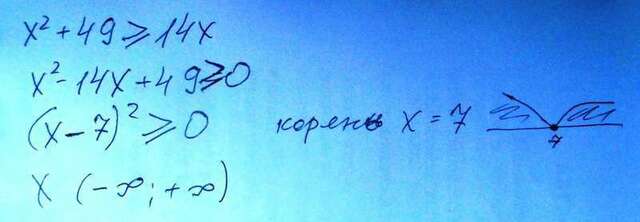 x² + 49 ≥ 14x
x² - 14x + 49 ≥ 0
(x - 7)² ≥ 0 корень x = 7
7
x (-∞; +∞)